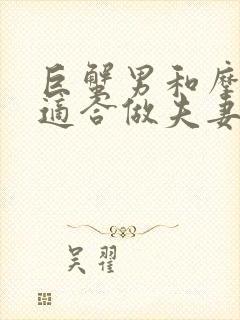 巨蟹男和摩
适合做夫妻
吴翟